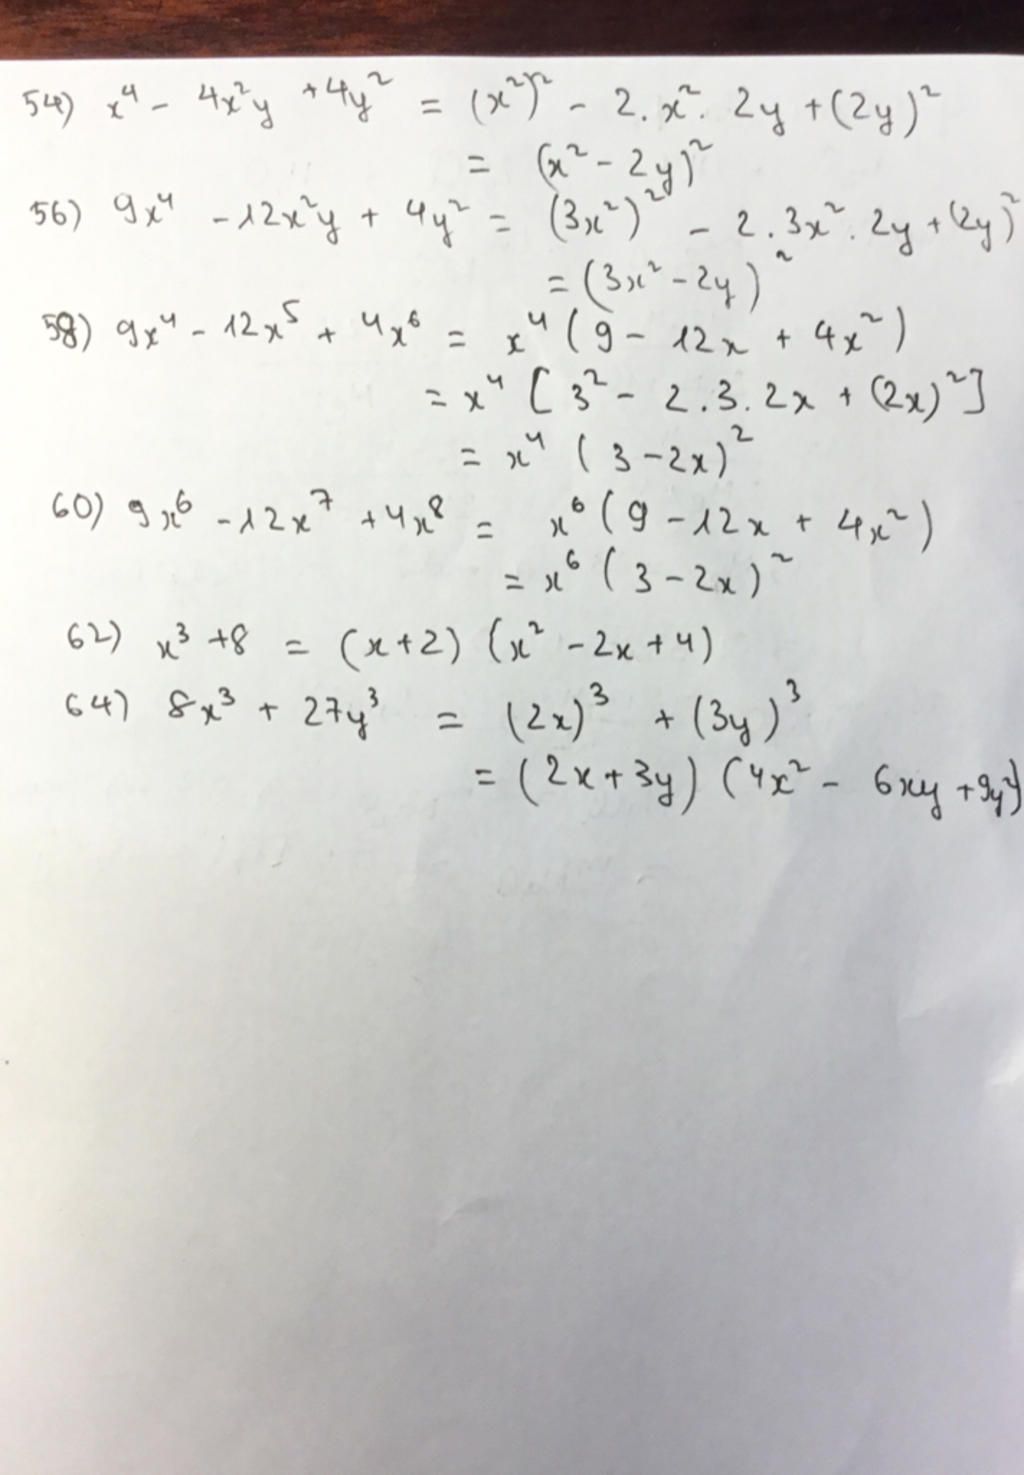 54) x⁴ - 4x²y + 4y² = (x²)² - 2. x². 2y + (2y)²
= (x² - 2y)²
56) 9x⁴ - 12x²y + 4y² = (3x²)² - 2.3x². 2y + (2y)²
= (3x² - 2y)²
58) 9x⁴ - 12x⁵ + 4x⁶ = x⁴ (9 - 12x + 4x²)
= x⁴ [3² - 2.3.2x + (2x)²]
= x⁴ (3 - 2x)²
60) 9x⁶ - 12x⁷ + 4x⁸ = x⁶ (9 - 12x + 4x²)
= x⁶ (3 - 2x)²
62) x³ + 8 = (x + 2) (x² - 2x + 4)
64) 8x³ + 27y³ = (2x)³ + (3y)³
= (2x + 3y) (4x² - 6xy + 9y²)